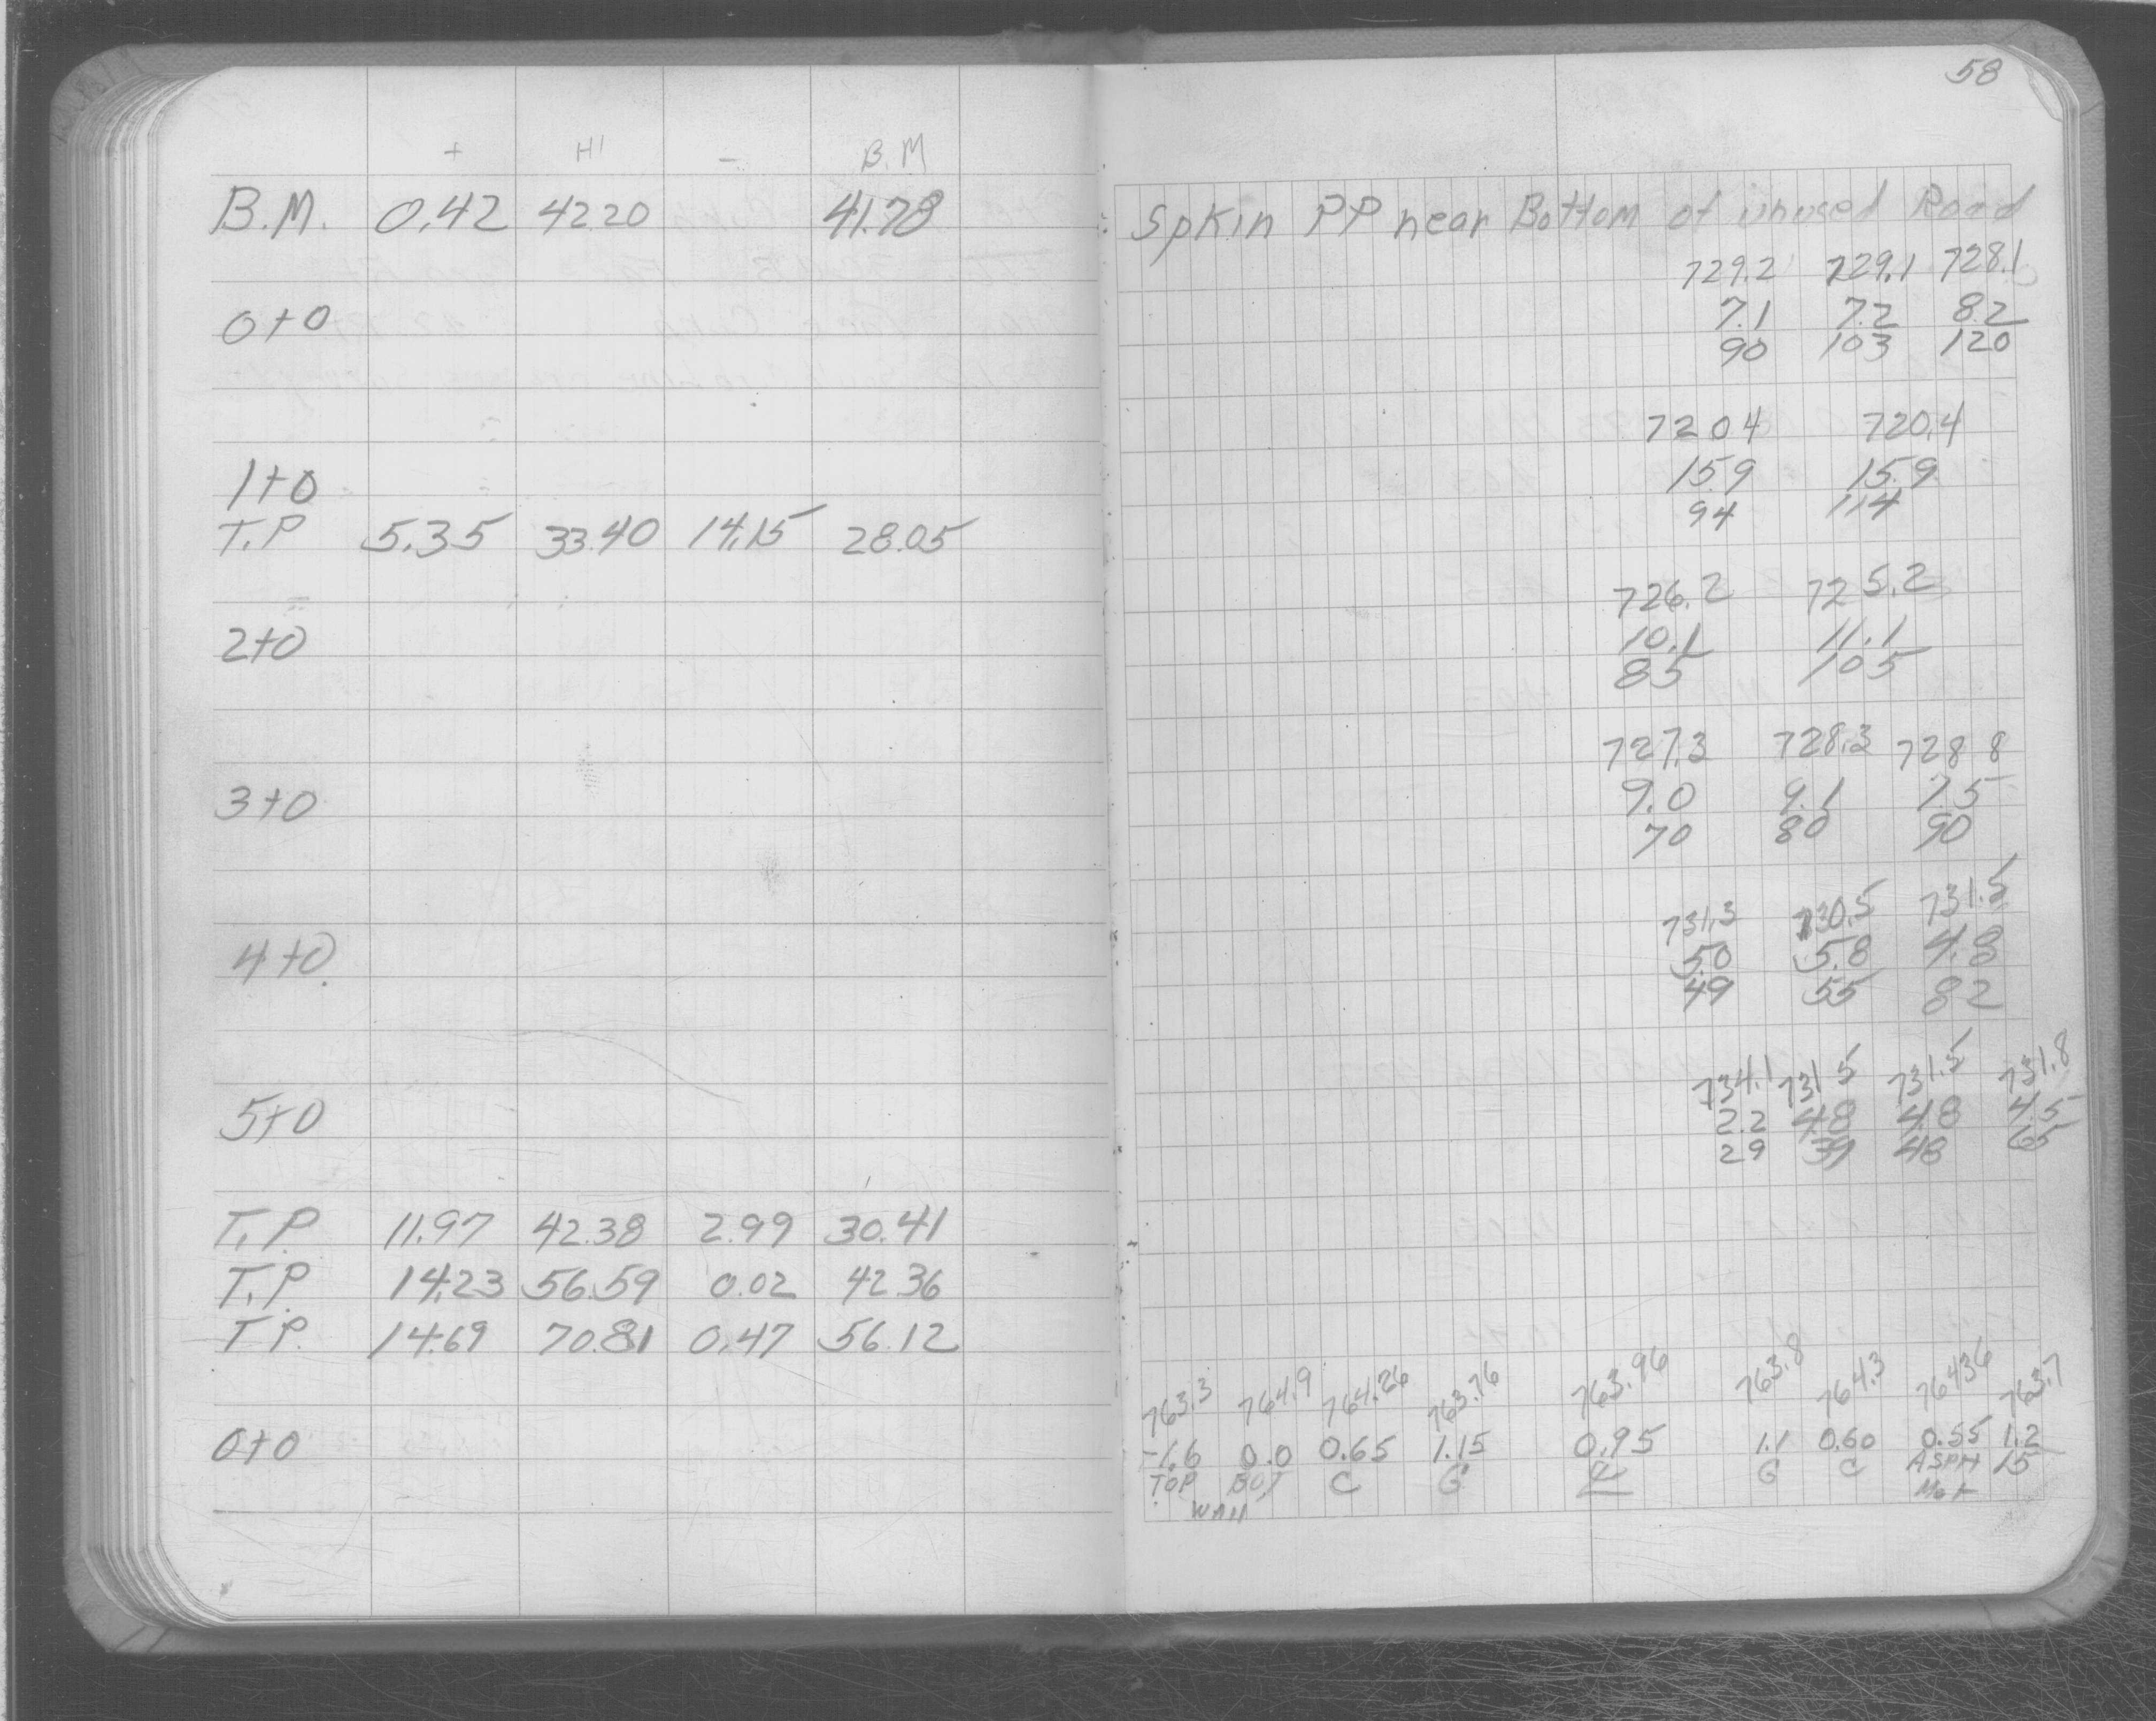 58
+ HI - B.M
B.M. 0.42 42.20 41.78
Spk in PP near Bottom of unused Road
729.2 729.1 728.1
0+0 7.1 7.2 8.2
90 103 120
720.4 720.4
1+0 15.9 15.9
T.P 5.35 33.40 14.15 28.05
94 114
726.2 725.2
2+0 10.1 11.1
85 105
727.3 728.3 728.8
3+0 9.0 9.1 7.5
70 80 90
731.3 730.5 731.5
4+0. 5.0 5.8 4.8
49 55 82
734.1 731.5 731.5 731.8
5+0 2.2 4.8 4.8 4.5
29 39 48 65
T.P. 11.97 42.38 2.99 30.41
T.P. 14.23 56.59 0.02 42.36
T.P. 14.69 70.81 0.47 56.12
763.3 764.9 764.26 763.76 763.96 763.8 764.3 764.36 763.7
0+0 -1.6 0.0 0.65 1.15 0.95 1.1 0.60 0.55 1.2
TOP BOT C G ℄ G C ASPH 15
WAll Mat